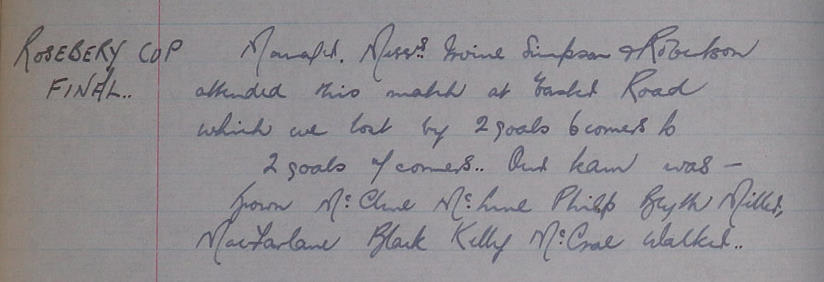 ROSEBERY CUP
FINAL..
Manager. Messrs. Irvine Simpson & Robertson
attended this match at Easter Road
which we lost by 2 goals 6 corners to
2 goals 7 corners.. Our team was —
Brown McClure Philip Blyth Miller,
MacFarlane Black Kelly McCrae Walker..